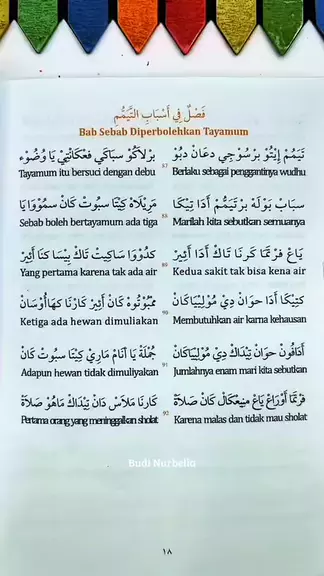 فَصْلٌ فِي أَسْبَابِ التَّيَمُّمِ
Bab Sebab Diperbolehkan Tayamum
تَيَمُّمْ إِيْتُوْ بَرْسُوْچِي دڠَانْ دَبُوْ بَرْلَاكُوْ سَبَاڬَي ڤڠْݢَانْتِيْ يَا وُضُوْء
Tayamum itu bersuci dengan debu 87 Berlaku sebagai penggantinya wudhu
سَبَابْ بَوْلَهْ بَرْتَيَمُّمْ أَدَا تِيْݢَا مَرِيْلَاهْ كِيْتَا سَبُوْتْ كَانْ سَمُوْوَا يَا
Sebab boleh bertayamum ada tiga 88 Marilah kita sebutkan semuanya
يَاڠْ ڤَرْتَمَا كَرْنَا تَاكْ أَدَا أَئِيْرْ كَدُوْوَا سَاكِيْتْ تَاكْ بِيْسَا كنَا أَئِيْرْ
Yang pertama karena tak ada air 89 Kedua sakit tak bisa kena air
كَتِيْݢَا أَدَا حَوَانْ دِيْ مُوْلِيْيَاكَانْ ممْبُوْتُوْهْ كَانْ أَئِيْرْ كَارْنَا كهَاؤُوْسَانْ
Ketiga ada hewan dimuliakan 90 Membutuhkan air karna kehausan
أَدَاڤُوْنْ حَوَانْ تِيْدَاكْ دِيْ مُوْلِيْيَاكَانْ جُمْلَةْ يَا أَنَامْ مَارِيْ كِيْتَا سَبُوْتْ كَانْ
Adapun hewan tidak dimuliyakan 91 Jumlahnya enam mari kita sebutkan
ڤَرْتَمَا أَوْرَاڠْ يَاڠْ مَنِيْڠْݢَالْ كَانْ صَلَاةْ كَارْنَا مَلَاسْ دَانْ تِيْدَاكْ مَاهُوْ صَلَاةْ
Pertama orang yang meninggalkan sholat 92 Karena malas dan tidak mau sholat
Budi Nurbelin
١٨